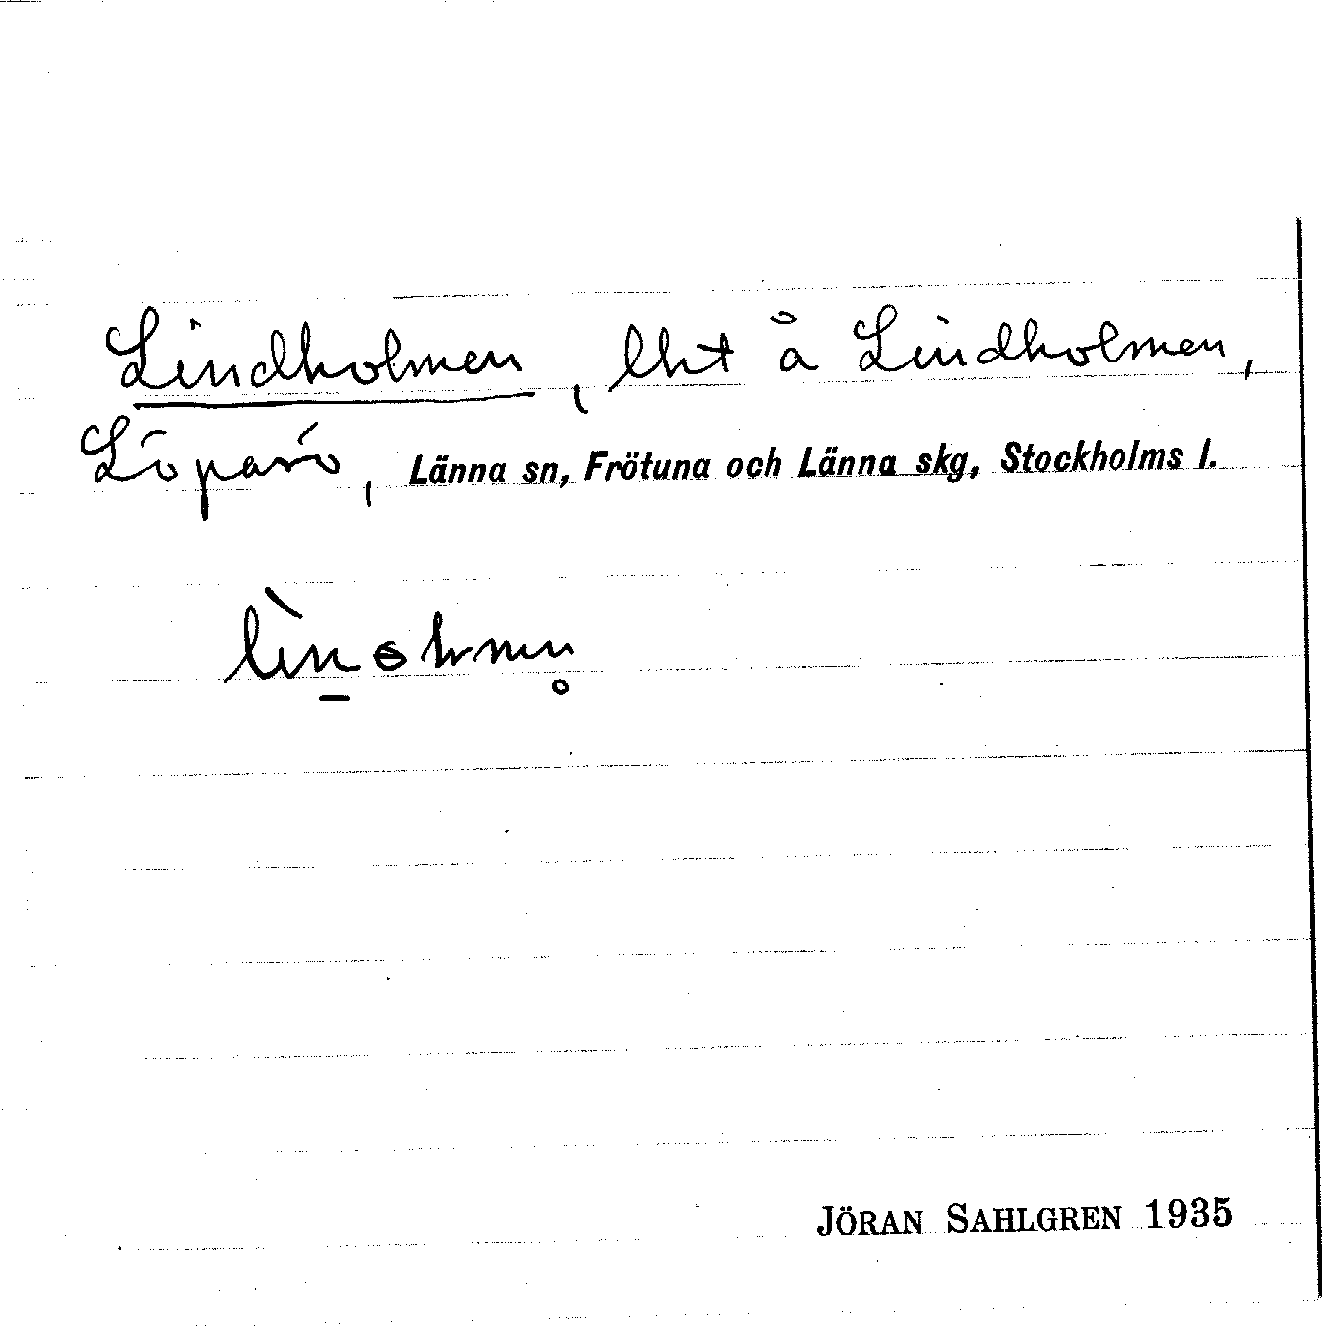 Lindholmen, lht å Lindholmen,
Löparö, Länna sn, Frötuna och Länna skg, Stockholms l.
JÖRAN SAHLGREN 1935